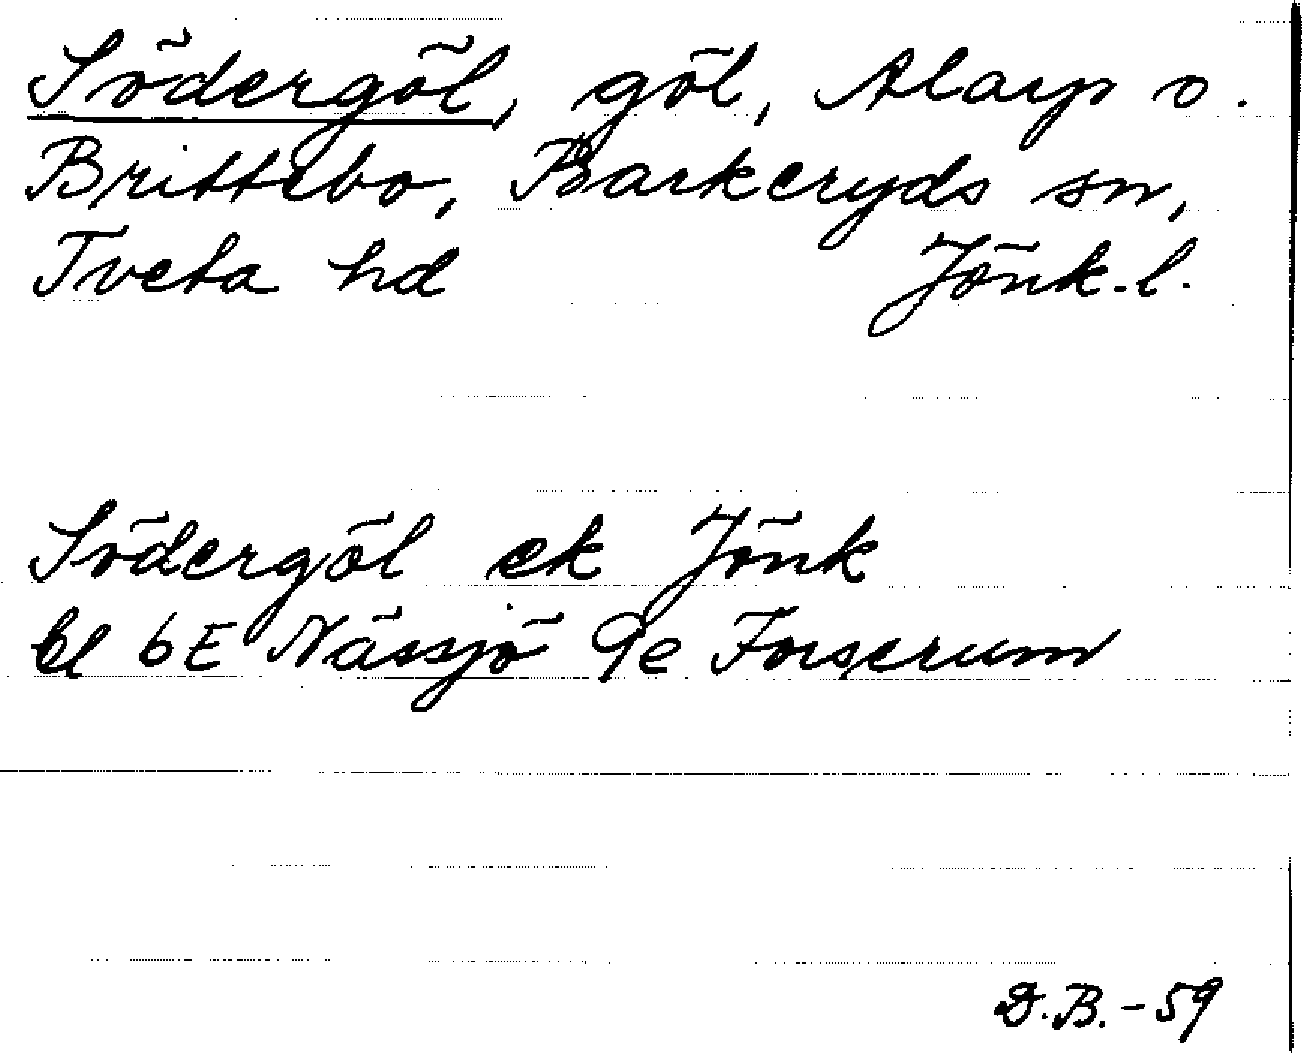 Södergöl, göl, Alarp o.
Brittebo, Barkeryds sn,
Tveta hd Jönk.l.
Södergöl ek Jönk
bl 6E Nässjö 9e Forserum
D.B.-59